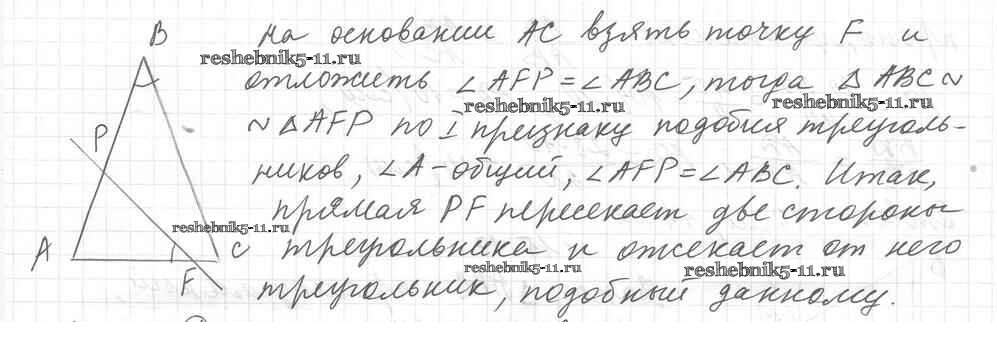 B
на основании AC взять точку F и
reshebnik5-11.ru
отложить ∠AFP = ∠ABC, тогда △ABC ~
reshebnik5-11.ru
reshebnik5-11.ru
P
~ △AFP по I признаку подобия треуголь-
ников, ∠A - общий, ∠AFP = ∠ABC. Итак,
прямая PF пересекает две стороны
reshebnik5-11.ru
A
C
треугольника и отсекает от него
reshebnik5-11.ru
reshebnik5-11.ru
F
треугольник, подобный данному.